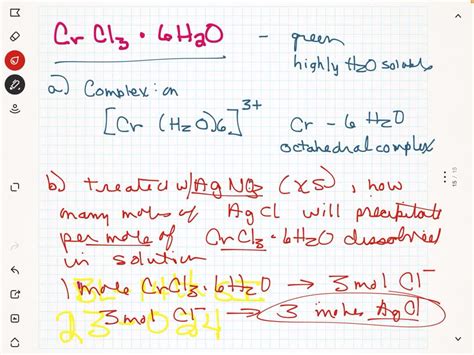 CrCl3 · 6H2O - green
highly H2O soluble
a) Complex ion
[Cr (H2O)6]3+ Cr - 6 H2O
octahedral complex
b) treated w/ AgNO3 (xs), how
many moles of AgCl will precipitate
per mole of CrCl3 · 6H2O dissolved
in solution
1 mole CrCl3 · 6H2O → 3 mol Cl-
3 mol Cl- → 3 moles AgCl
23-024
15 / 15